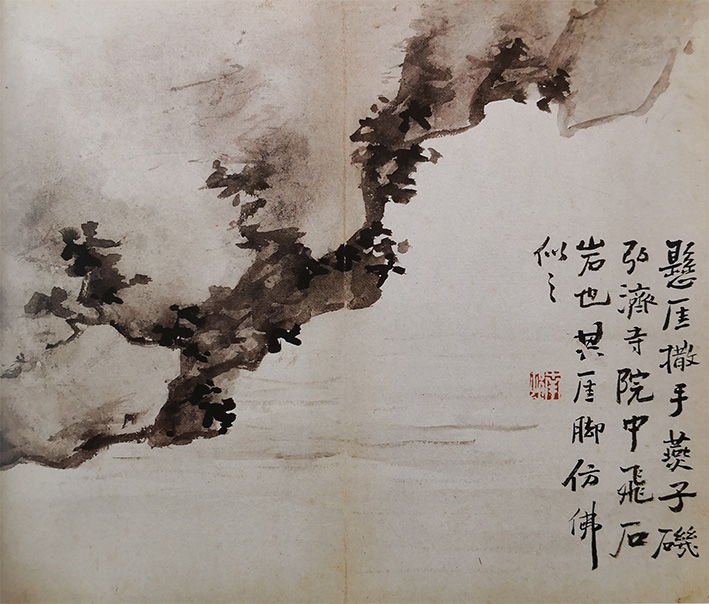 懸厓撒手燕子磯
弘濟寺院中飛石
岩也其厓脚仿佛
似之